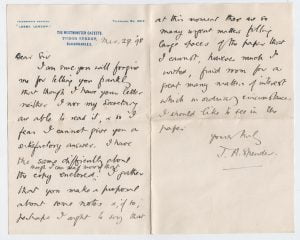 TELEGRAPHIC ADDRESS
TELEPHONE NO.
THE WESTMINSTER GAZETTE,
TUDOR STREET,
BLACKFRIARS.
Dear Sir
I am sure you will forgive
me for telling you frankly
that though I have your letter
neither I nor my Secretary
are able to read it, & so I
fear I cannot give you a
satisfactory answer. I have
the same difficulty about
the copy enclosed. I gather
that you make a proposal
about some notes & if so,
perhaps I ought to say that
at this moment there are so
many urgent matters filling
large spaces of the paper that
I cannot, however much I
wished, find room for a
great many matters of interest
which in ordinary circumstances
I should like to see in the
paper.
Yours truly
J. A. Spender